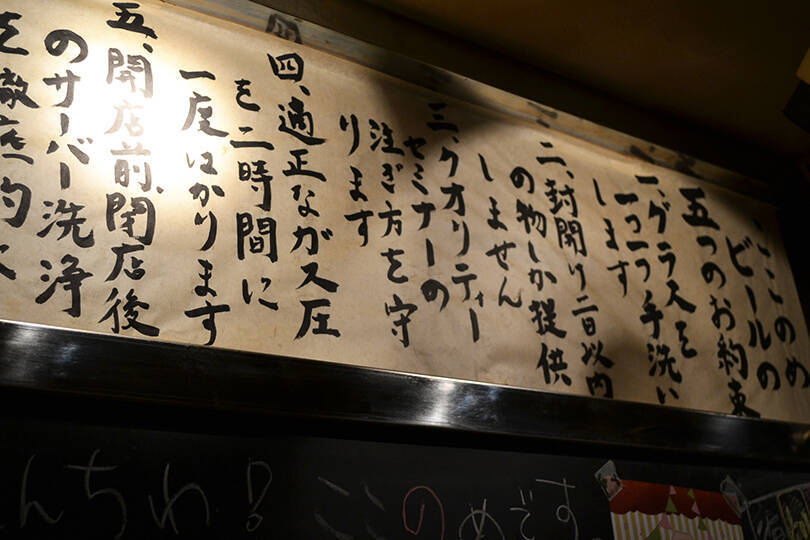 ここのめ
ビールの
五つのお約束
一、グラスを
一つ一つ手洗い
します
二、封開け二日以内
の物しか提供
しません
三、クオリティー
セミナーの
注ぎ方を守
ります
四、適正なガス圧
を二時間に
一度はかります
五、開店前、閉店後
のサーバー洗浄
を徹底的
んちわ!
ここのめです